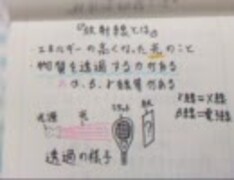 『放射線とは』
・エネルギーの高くなった光のこと
・物質を透過する力がある
α、β、γ線等がある
光源
光
紙
γ線=X線
β線=電子線
透過の様子